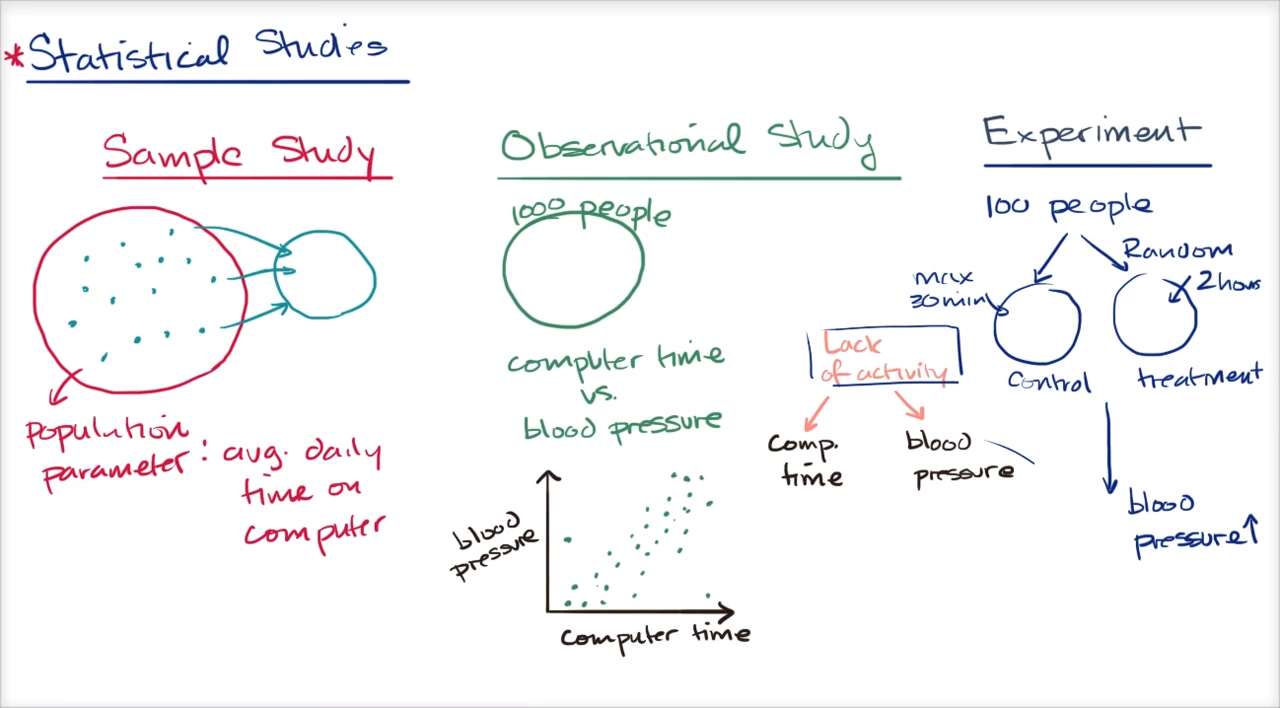 * Statistical Studies
Sample Study
Population
parameter : avg. daily
time on
computer
Observational Study
1000 people
computer time
vs.
blood pressure
blood
pressure
computer time
Lack
of activity
Comp.
time
blood
pressure
Experiment
100 people
Random
max
30 min
2 hours
Control
treatment
blood
pressure↑